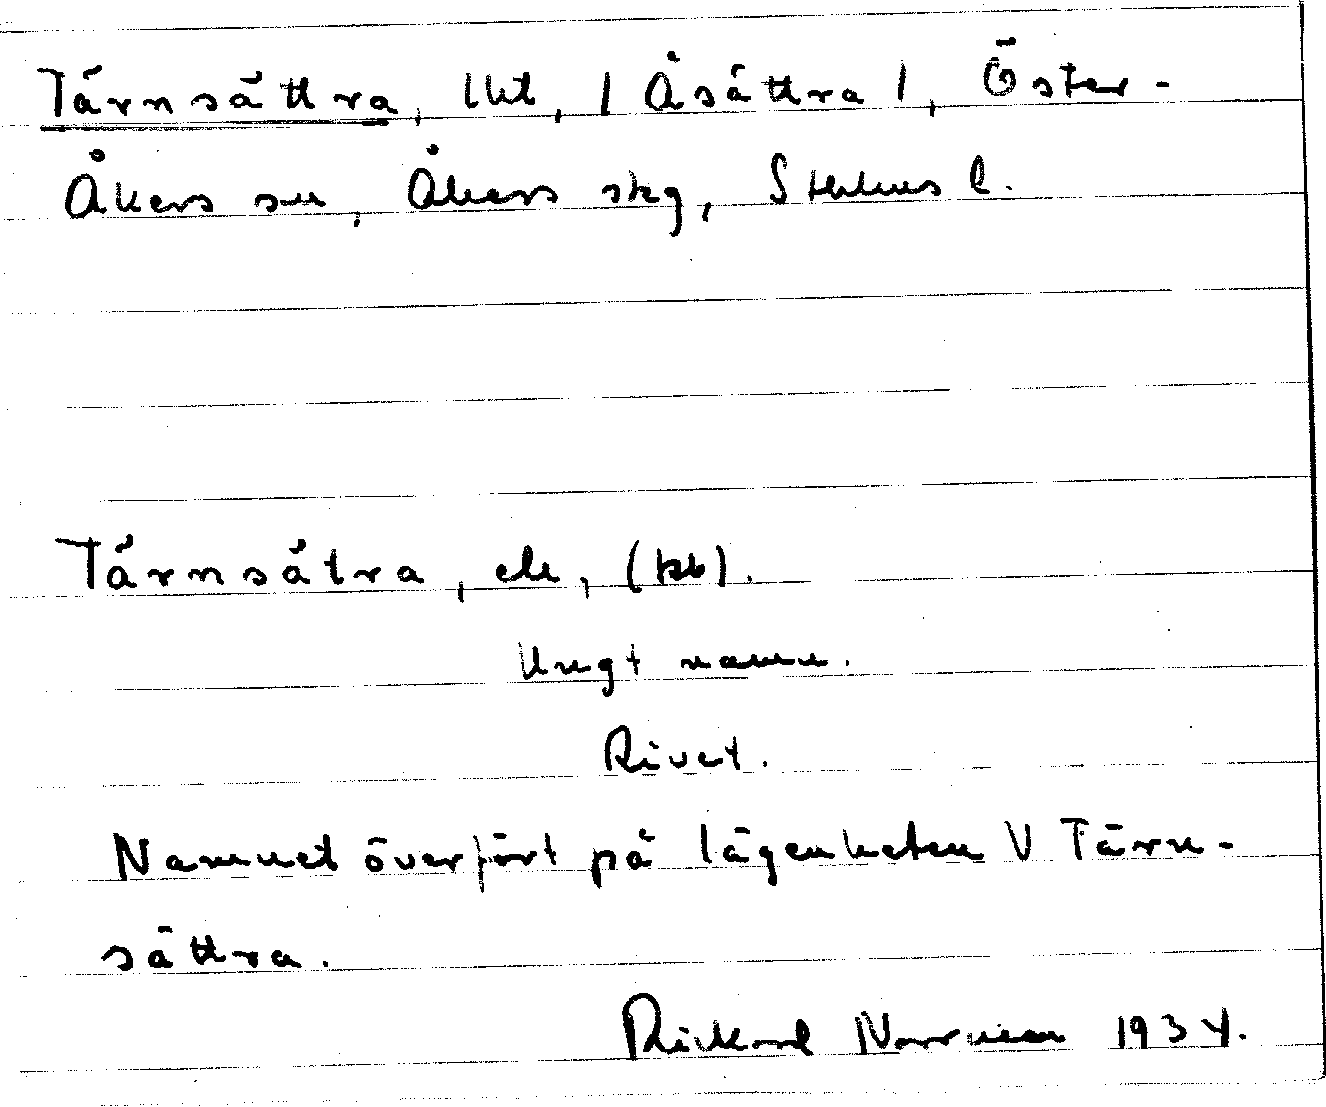 Tärnsättra, lht, / Åsättra /, Öster-
Åkers sn, Åkers skg, Sthlms l.
Tärnsätra, ele, (kb).
Ungt namn.
Rivet.
Namnet överfört på lägenheten V Tärn-
sättra.
Rickard Norrman 1934.